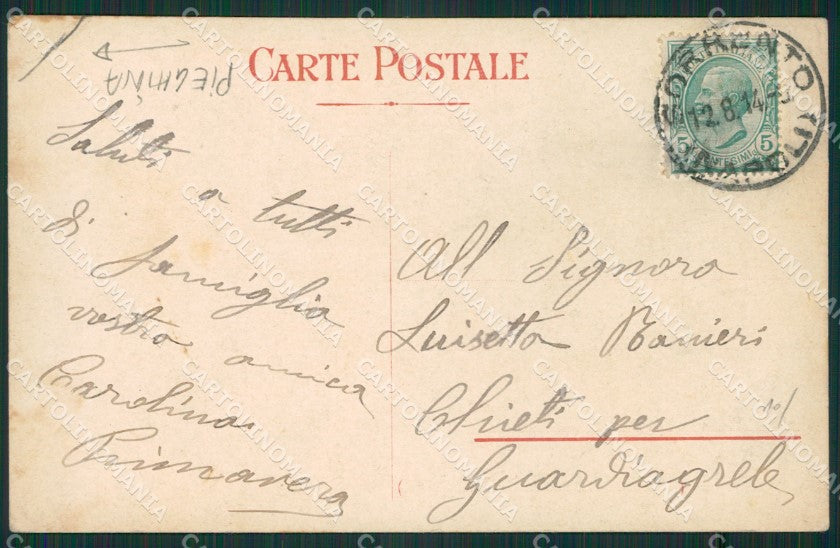 PIEGHINA
CARTE POSTALE
SORRENTO
12.8.14
5 5
CENTESIMI
Saluti
a tutti
di famiglia
vostra amica
Carolina
Primavera
All Signora
Luisetta Ranieri
Chieti per
Guardiagrele
CARTOLINOMANIA